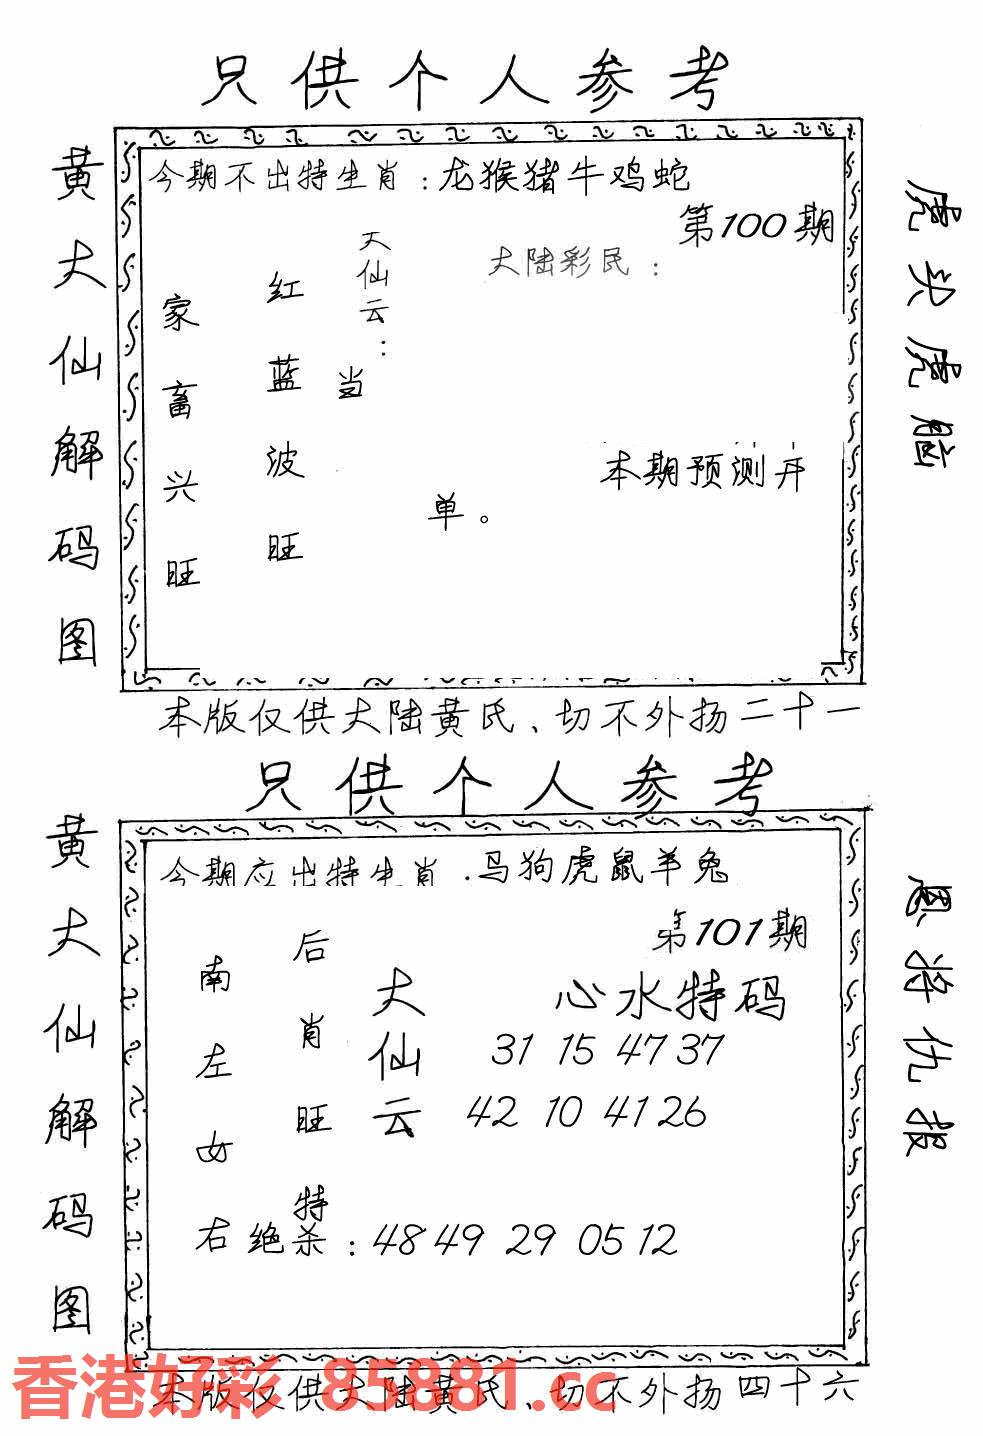 只供个人参考
黄大仙解码图
今期不出特生肖：龙猴猪牛鸡蛇
第100期
大陆彩民：
大仙云：
当
红蓝波旺
家畜兴旺
单。
本期预测开
虎头虎脑
本版仅供大陆黄氏、切不外扬二十一
只供个人参考
黄大仙解码图
今期应出特生肖.马狗虎鼠羊兔
第101期
南左女右
后肖旺特
大仙云
心水特码
31 15 47 37
42 10 41 26
绝杀：48 49 29 05 12
恩将仇报
本版仅供大陆黄氏、切不外扬四十六
香港好彩 85881.cc